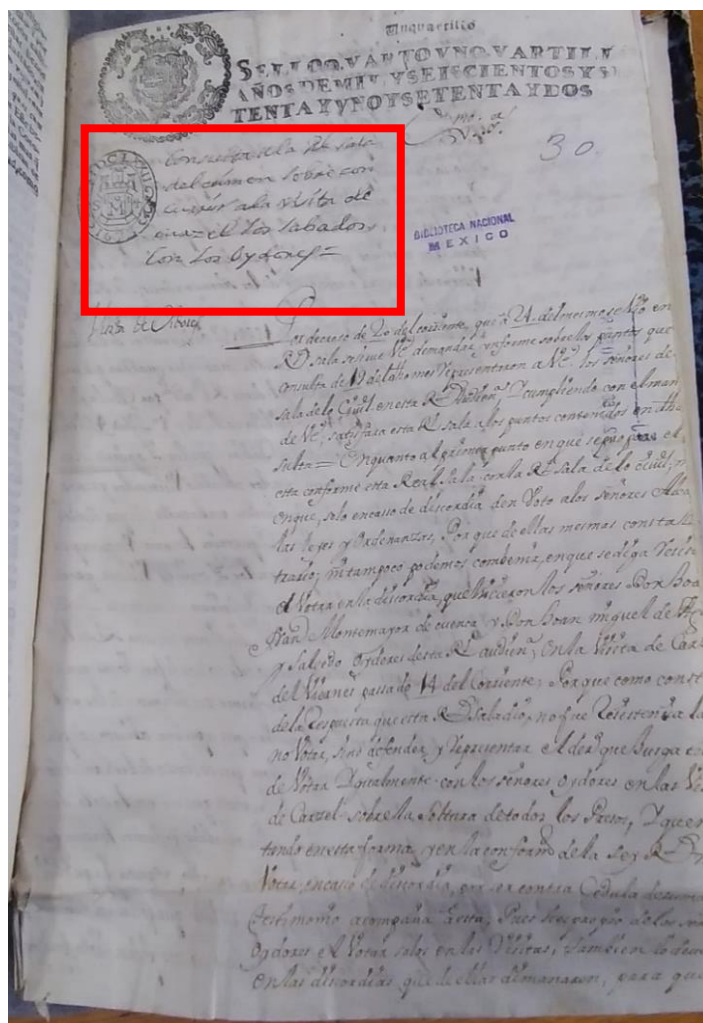 Vnquartillo
SELLO QVARTO VNQVARTILL
AÑOS DE MIL Y SEISCIENTOS Y S
TENTA Y VNO Y SETENTA Y DOS
30
Consulta de la Rl sala
del crimen sobre con
currir a la visita de
carzel los sabados
Con los Oydores =
BIBLIOTECA NACIONAL
MEXICO
Por decreto de 20 del corriente, que à 21 del mesmo en
Rl sala sesirue Vc. demandar ynforme sobre los puntos que
consulta de 19 del dho mes Representaron a Vc. los señores de
sala de lo Ciuil en esta Rl Audiena Y cumpliendo con el man
de Vc. satisfara esta Rl sala a los puntos contenidos en dha
sulta = En quanto al primer punto en que
esta conforme esta Real sala con la Rl sala de lo ciuil,
en que, solo en caso de discordia den Voto a los señores Alca
las leyes y Ordenanzas, Por que de ellas mesmas consta
trario; ni tampoco podemos combenir, en que se diga
el Votar en la discordia, que hicieron los señores Don Joan
Fran Montemayor de cuenca y Don Joan miguel de
y Salcedo Oydores desta Rl audiena, en la Visita de Car
del Viernes passado 14 del Corriente; Porque como const
de la Respuesta que esta Rl Sala dio, no fue Resistencia la
no Votar, sino defender y Representar el dero que Juzga
de Votar Ygualmente con los señores oydores en las Vi
de Carzel sobre la soltura de todos los Presos, Y que
tando en esta forma, y en la conformd de la ley Rl
Votar, en caso de discordia, por ser contra Cedula
testimonio acompaña à esta, Pues si es propio de los
Oydores el Votar solos en las Visitas, tambien lo
en las discordias que de ellas dimanaren, para que